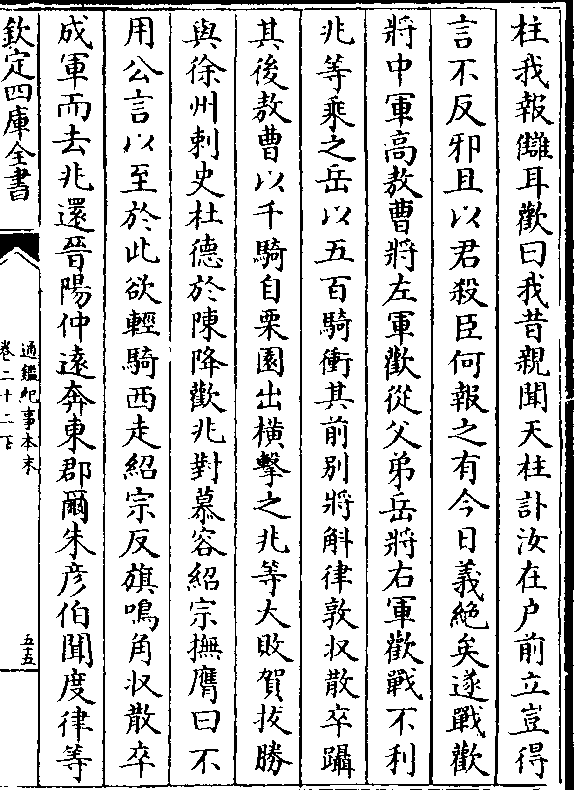 柱我報讎耳歡曰我昔親聞天柱計汝在户前立豈得
言不反邪且以君殺臣何報之有今日義絶矣遂戰歡
將中軍髙敖曹將左軍歡從父弟岳將右軍歡戰不利
兆等乘之岳以五百騎衝其前别將斛律敦收散卒躡
其後敖曹以千騎自栗園出橫擊之兆等大敗賀拔勝
與徐州刺史杜德於陳降歡兆對慕容紹宗撫膺曰不
用公言以至於此欲輕騎西走紹宗反旗鳴角収散卒
成軍而去兆還晉陽仲逺奔東郡爾朱彦伯聞度律等
欽定四庫全書
通鑑紀事本末
卷二十二下
五五